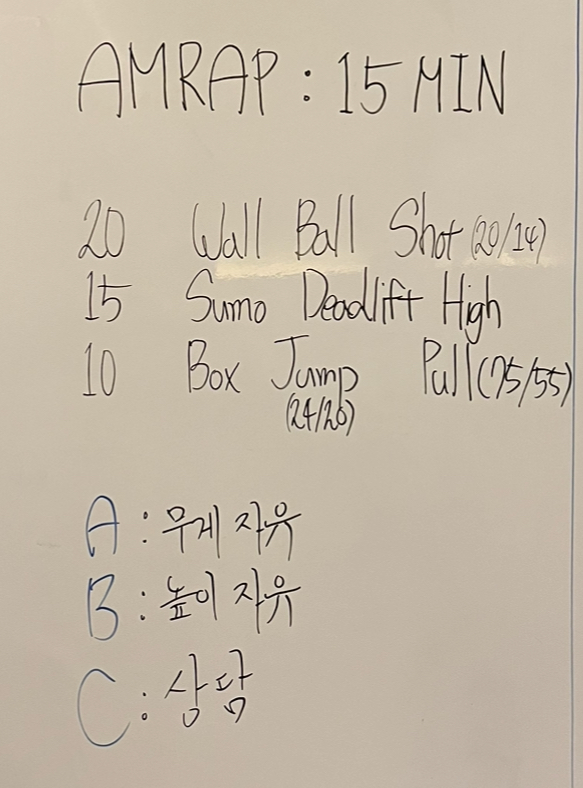 AMRAP : 15 MIN
20 Wall Ball Shot (20/14)
15 Sumo Deadlift High Pull (75/55)
10 Box Jump (24/20)
A : 무게 자유
B : 높이 자유
C : 상담